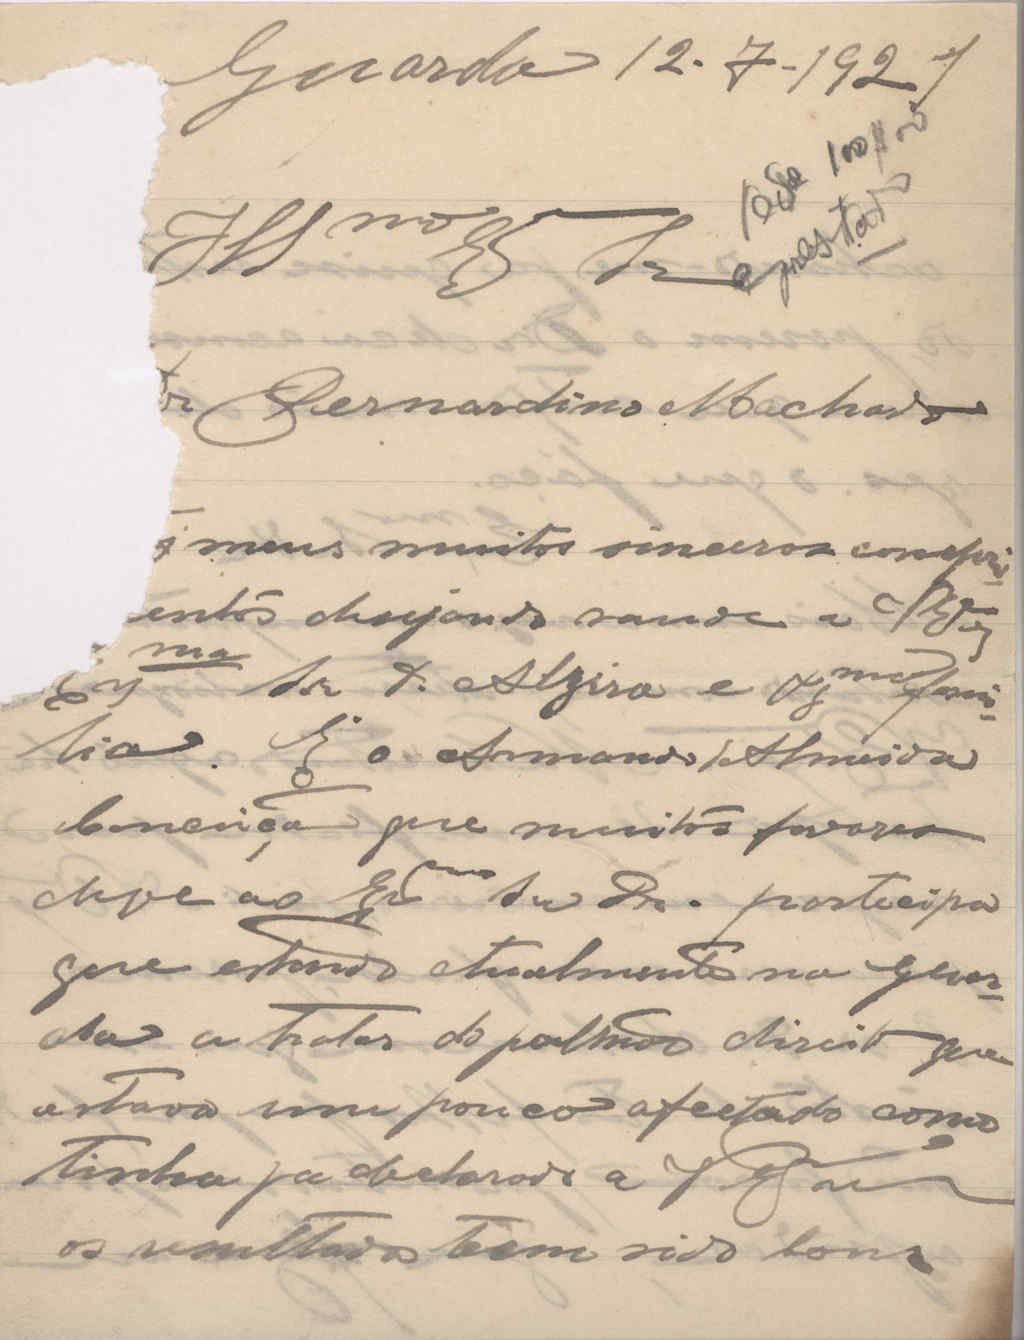 Guarda 12-7-1927
Pede 100$00
emprestados
Illmo Exmo Sr
tor Bernardino Machado
os meus muitos sinceros compri-
entos desejando saude a V. Exa
Exma Sra D. Alzira e Exma fami-
lia. É o Armando d'Almeida
Conceição que muitos favores
deve ao Exmo Snr Dr. participa
que estando atualmente na Guar-
da a tratar do pulmão direito que
estava um pouco afectado como
tinha ja declarado a V. Exa
os resultados teem sido bons